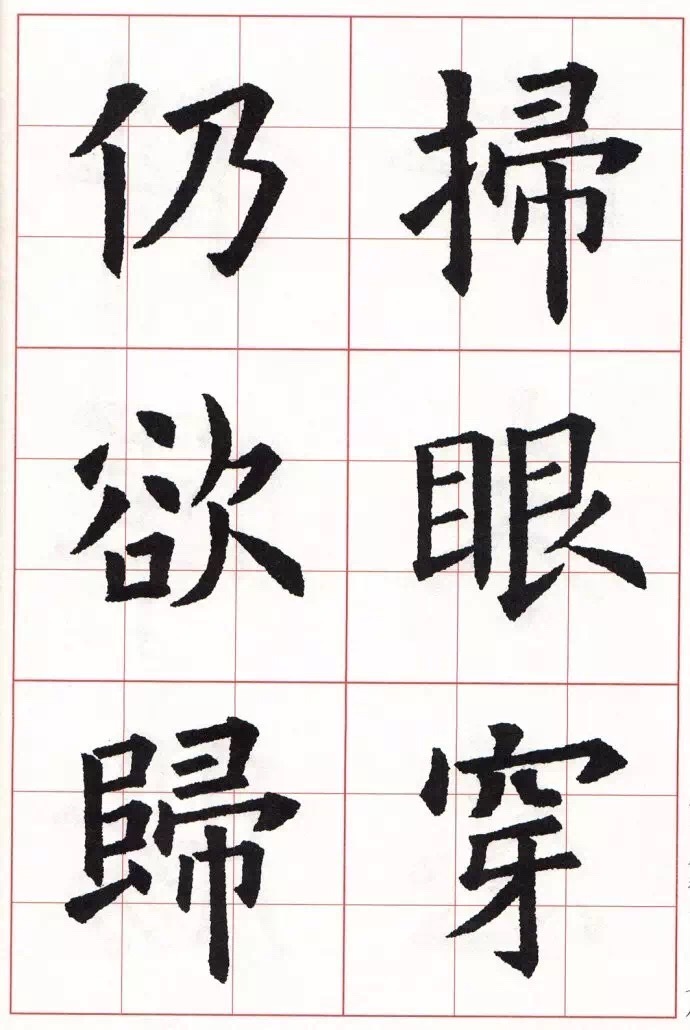 掃眼穿
仍欲歸